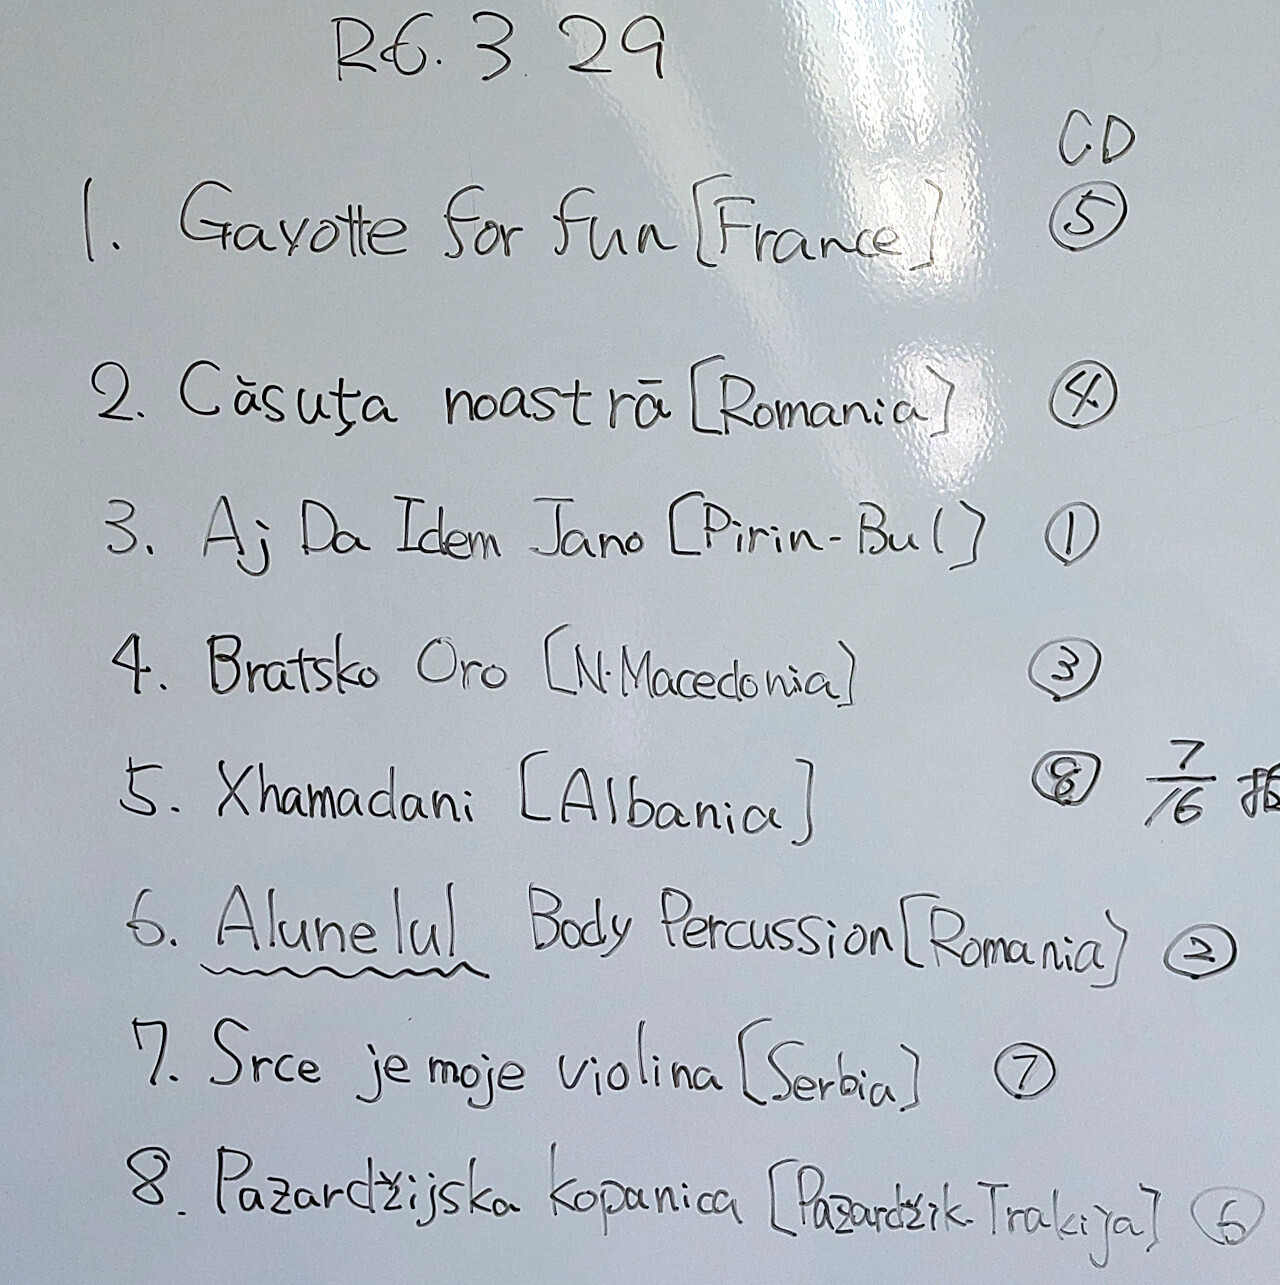 R6. 3. 29
CD
1. Gavotte for fun [France] ⑤
2. Căsuţa noastrā [Romania] ④
3. Aj Da Idem Jano [Pirin-Bul] ①
4. Bratsko Oro [N.Macedonia] ③
5. Xhamadani [Albania] ⑧ 7/16
6. Alunelul Body Percussion [Romania] ②
7. Srce je moje violina [Serbia] ⑦
8. Pazardžijska kopanica [Pazardžik. Trakija] ⑥